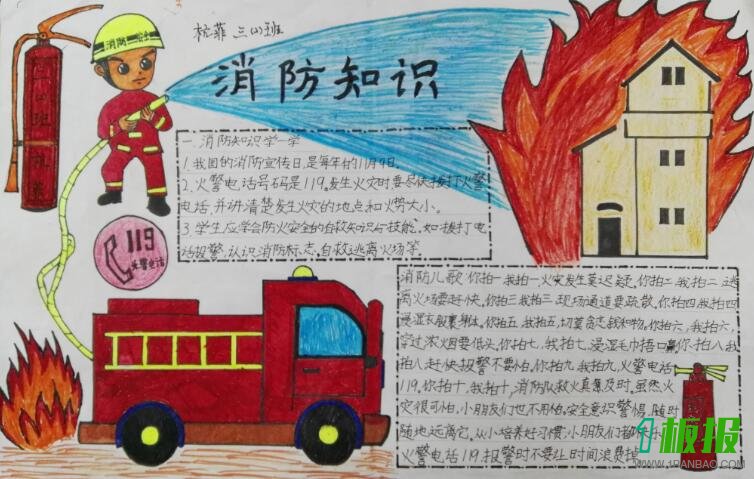 杭菲 三(1)班
消防三(1)
三(1)班杭菲
消防知识
一.消防知识学一学
1.我国的消防宣传日,是每年的11月9日。
2.火警电话号码是119,发生火灾时要尽快拨打火警
电话,并讲清楚发生火灾的地点和火势大小。
3.学生应学会防火安全的自救知识与技能,如拨打电
话报警,认识消防标志,自救逃离火场等。
119
火警电话
消防儿歌 你拍一 我拍一 火灾发生莫迟疑。你拍二 我拍二 逃
离火场要赶快。你拍三我拍三 现场通道要疏散。你拍四我拍四
浸湿衣服裹身体。你拍五,我拍五,切莫贪恋钱和物。你拍六,我拍六,
穿过浓烟要低头。你拍七,我拍七,浸湿毛巾捂口鼻。你拍八我
拍八 赶快报警不要怕。你拍九,我拍九,火警电话
119。你拍十,我拍十,消防队救火真及时。虽然火
灾很可怕,小朋友们也不用怕,安全意识警惕,随时
随地远离它。从小培养好习惯,小朋友们都
火警电话119,报警时不要让时间浪费掉
1板报
WWW.1BANBAO.COM